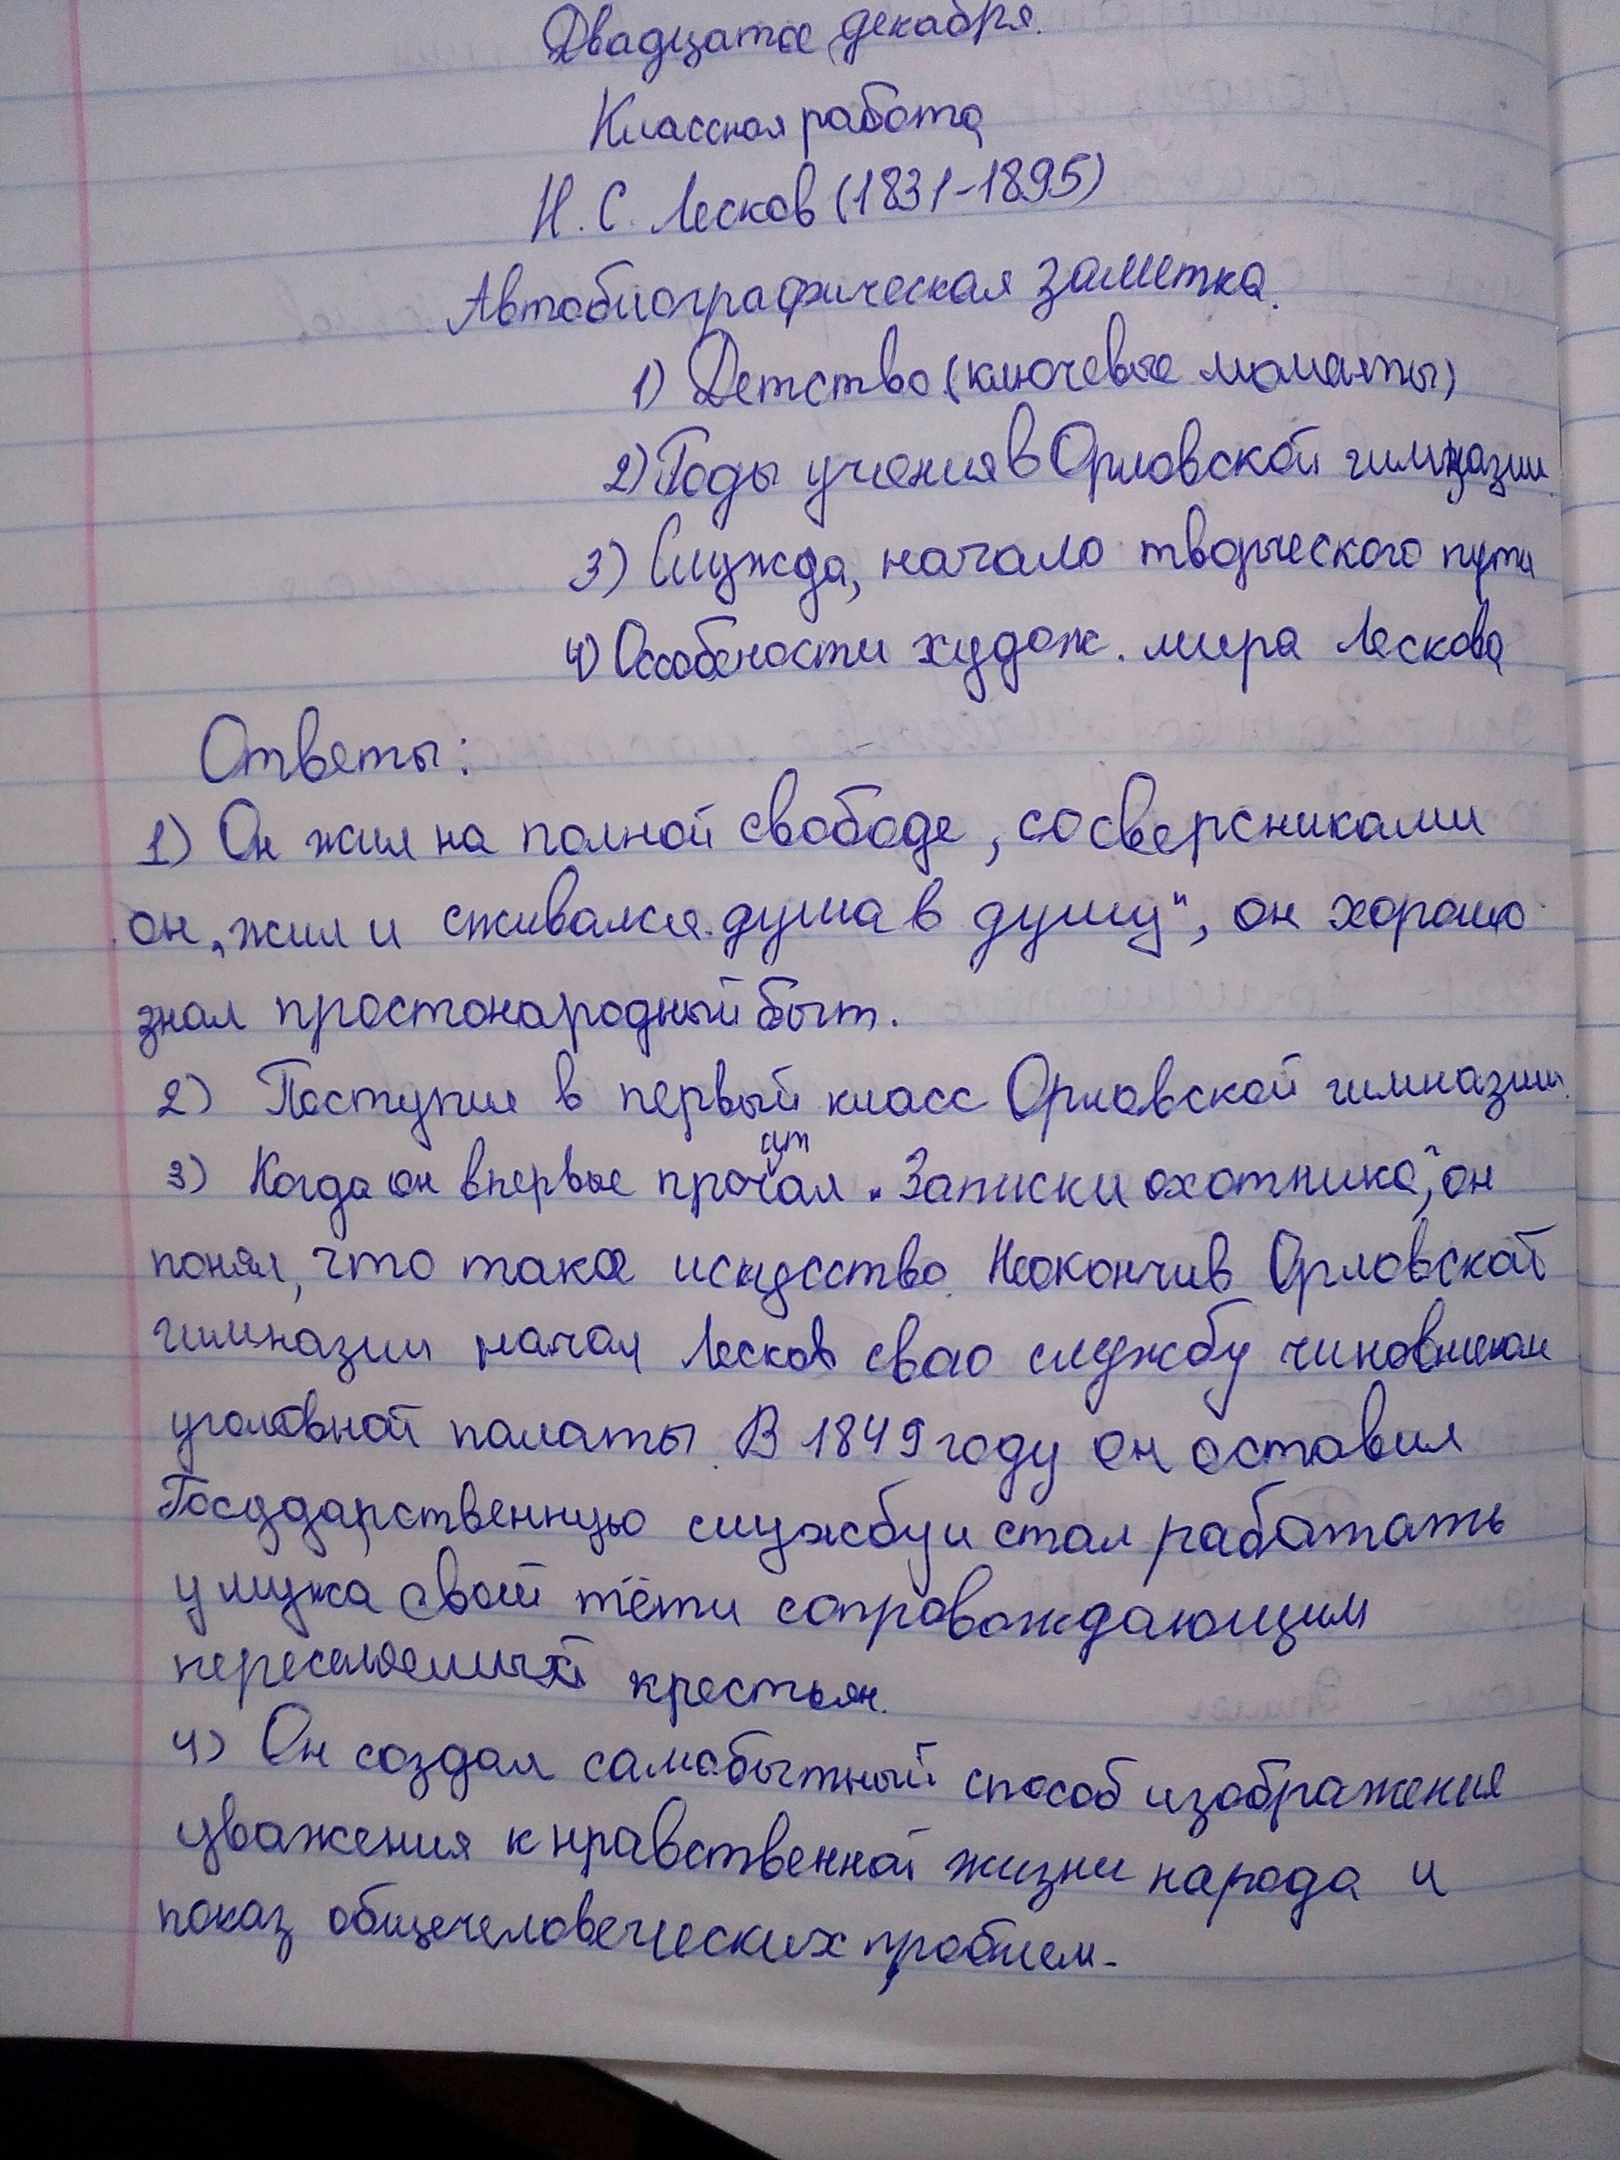 Двадцатое декабря.
Классная работа
Н. С. Лесков (1831-1895)
Автобиографическая заметка.
1) Детство (ключевые моменты)
2) Годы учения в Орловской гимназии.
3) Служда, начало творческого пути
4) Особености худож. мира Лескова
Ответы:
1) Он жил на полной свободе, со сверсниками
он „жил и сживался душа в душу", он хорошо
знал простонародный быт.
2) Поступил в первый класс Орловской гимназии.
3) Когда он впервые прочитал „Записки охотника", он
понял, что такое искусство. Неокончив Орловской
гимназии начал Лесков свою службу чиновником
уголовной палаты. В 1849 году он оставил
Государственную службу и стал работать
у мужа свой тёти сопровождающим
переселяемых крестьян.
4) Он создал самобытный способ изображения
уважения к нравственной жизни народа и
показ общечеловеческих проблем.